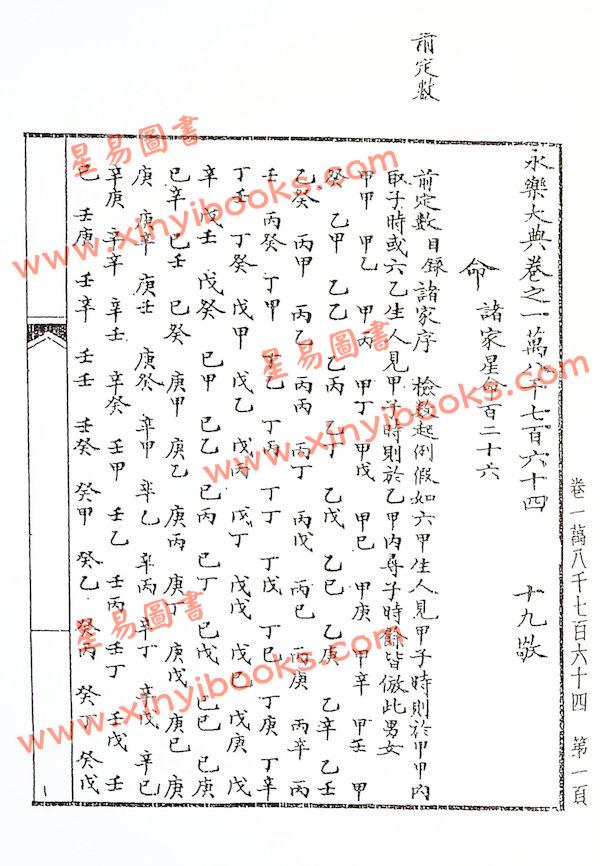 前定數
卷一萬八千七百六十四 第一頁
永樂大典卷之一萬八千七百六十四 十九敬
命 諸家星命百二十六
前定數目錄 諸家序 檢數起例假如六甲生人見甲子時則於甲甲內
取子時或六乙生人見甲子時則於乙甲內尋子時餘皆倣此男女
甲甲 甲乙 甲丙 甲丁 甲戊 甲巳 甲庚 甲辛 甲壬 甲
癸 乙甲 乙乙 乙丙 乙丁 乙戊 乙巳 乙庚 乙辛 乙壬
乙癸 丙甲 丙乙 丙丙 丙丁 丙戊 丙巳 丙庚 丙辛 丙
壬 丙癸 丁甲 丁乙 丁丙 丁丁 丁戊 丁巳 丁庚 丁辛
丁壬 丁癸 戊甲 戊乙 戊丙 戊丁 戊戊 戊巳 戊庚 戊
辛 戊壬 戊癸 巳甲 巳乙 巳丙 巳丁 巳戊 巳巳 巳庚
巳辛 巳壬 巳癸 庚甲 庚乙 庚丙 庚丁 庚戊 庚巳 庚
庚 庚辛 庚壬 庚癸 辛甲 辛乙 辛丙 辛丁 辛戊 辛巳
辛庚 辛辛 辛壬 辛癸 壬甲 壬乙 壬丙 壬丁 壬戊 壬
巳 壬庚 壬辛 壬壬 壬癸 癸甲 癸乙 癸丙 癸丁 癸戊
星易圖書
www.xinyibooks.com
星易圖書
www.xinyibooks.com
星易圖書
www.xinyibooks.com